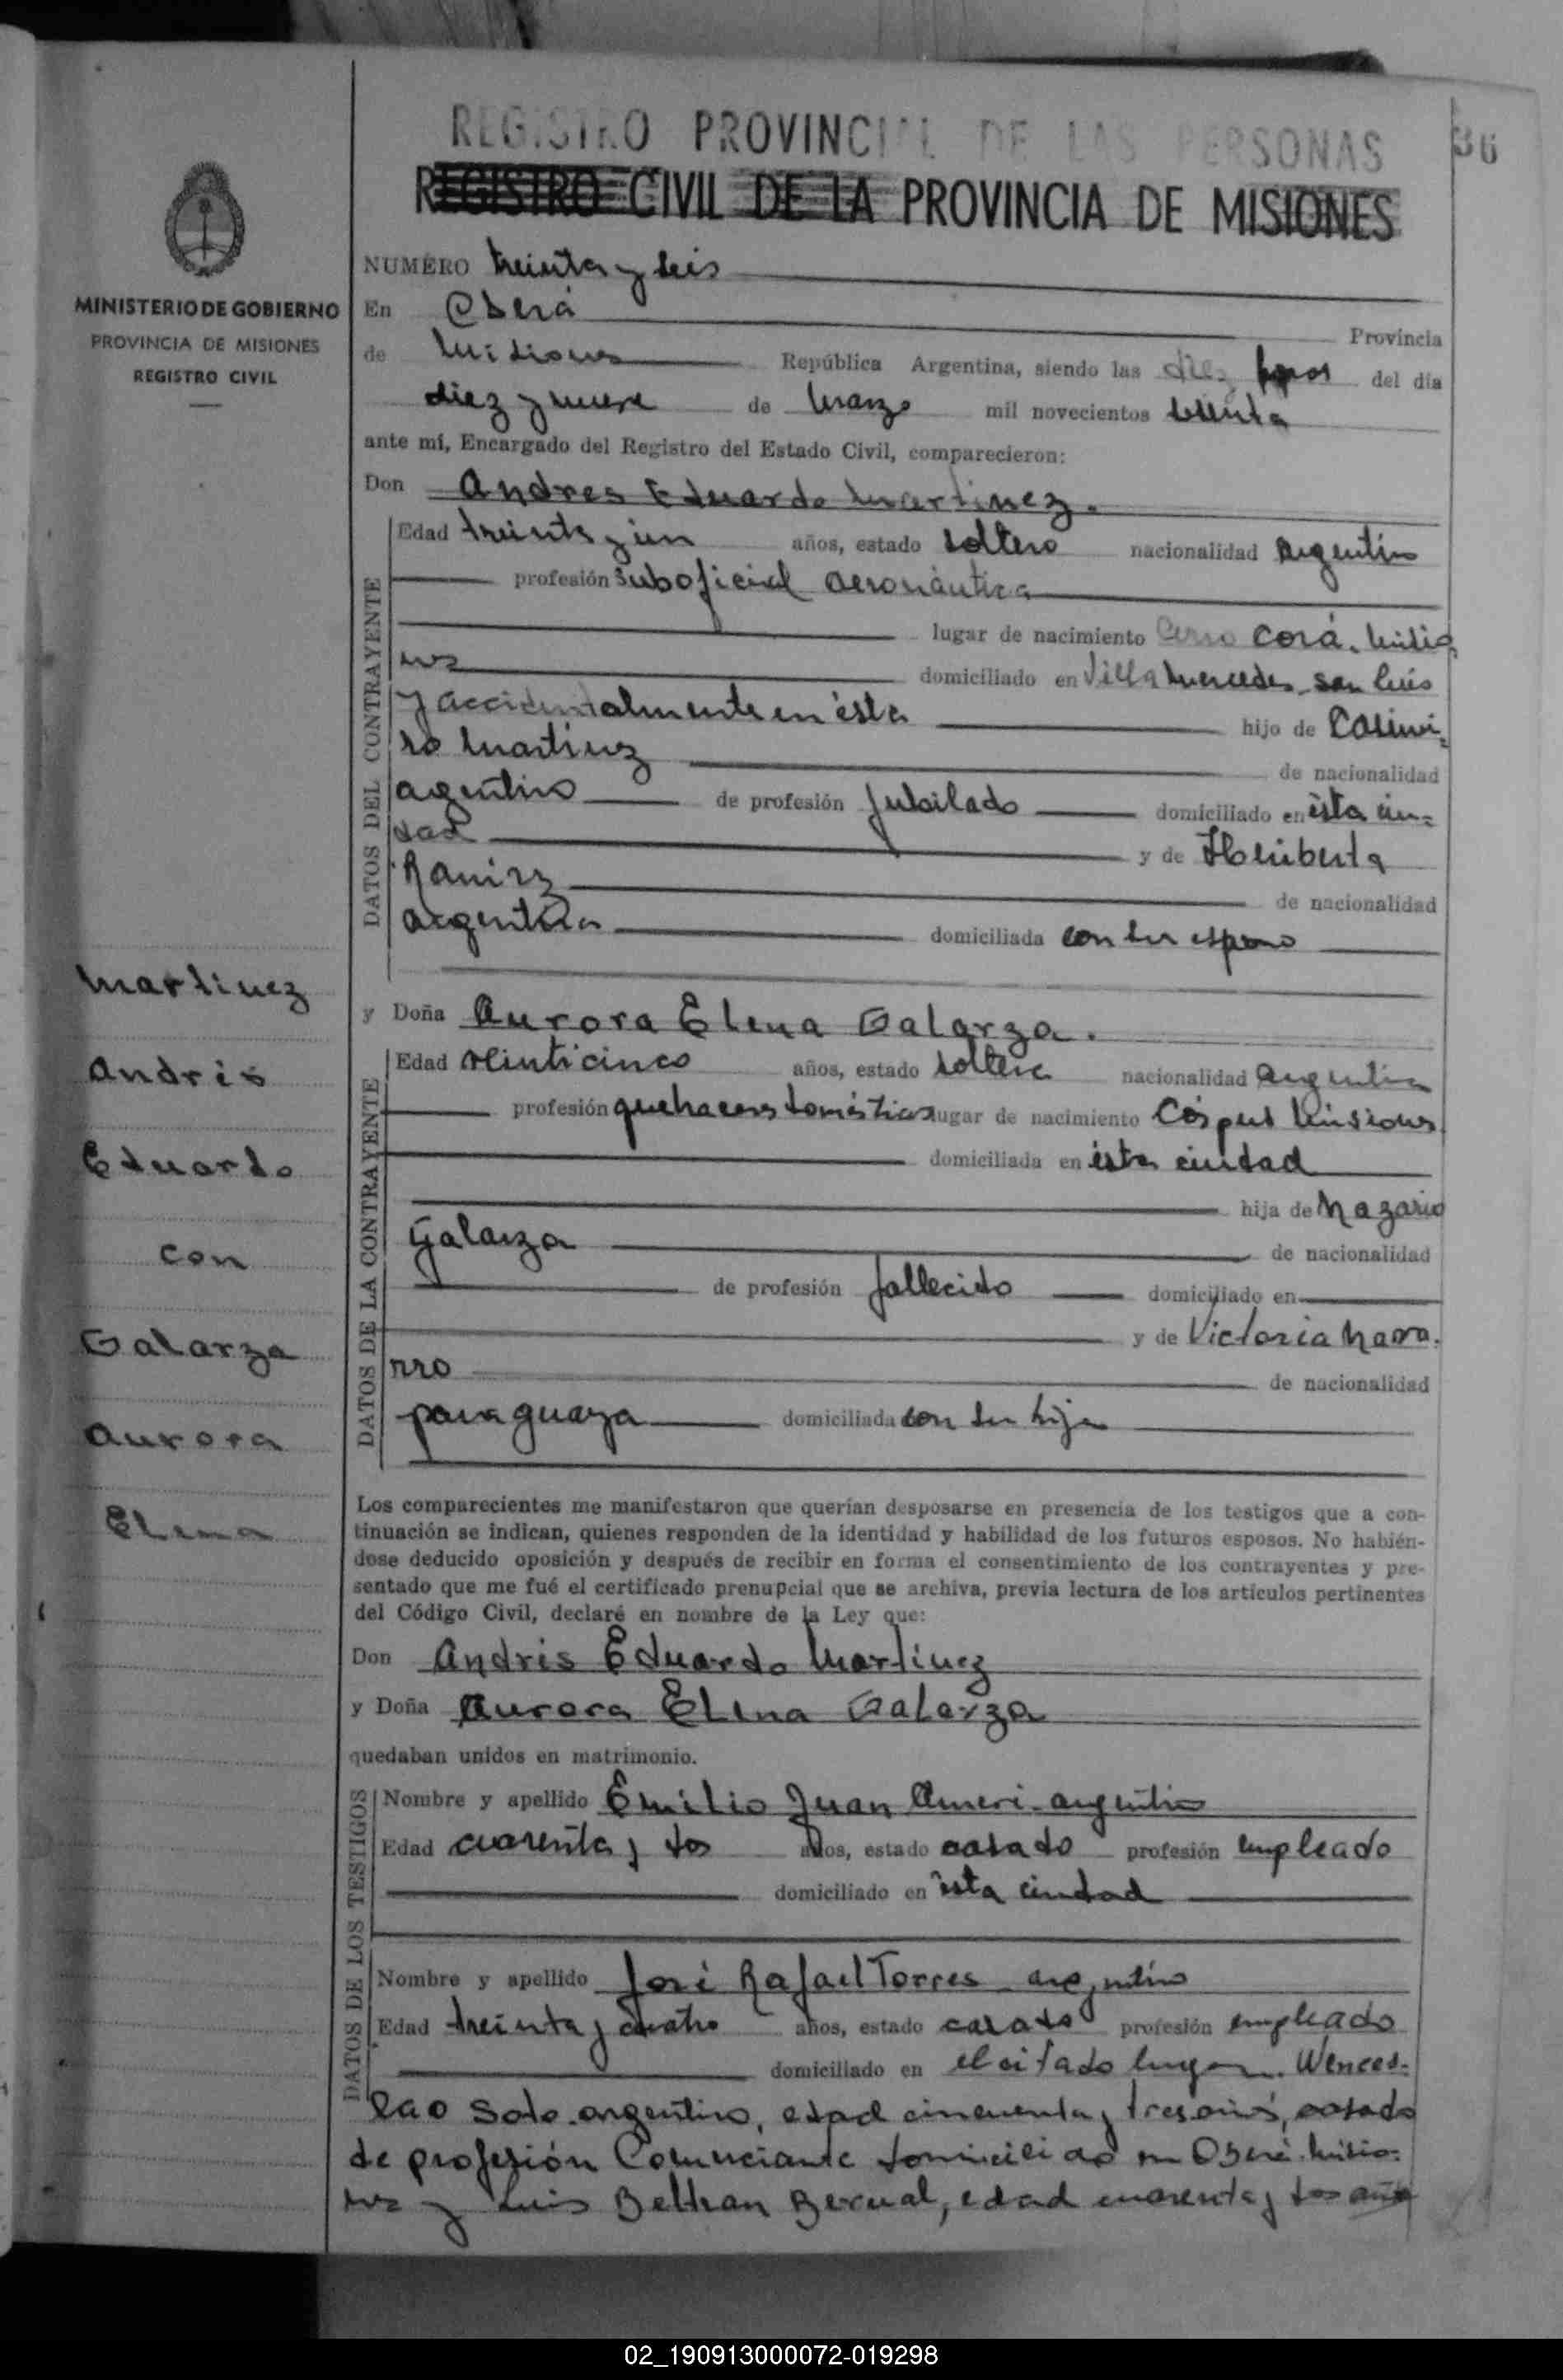 REGISTRO PROVINCIAL DE LAS PERSONAS
36
REGISTRO CIVIL DE LA PROVINCIA DE MISIONES
MINISTERIO DE GOBIERNO
PROVINCIA DE MISIONES
REGISTRO CIVIL
NUMERO treinta y seis
En Oberá
Provincia
de Misiones República Argentina, siendo las diez horas del día
diez y nueve de Marzo mil novecientos setenta
ante mí, Encargado del Registro del Estado Civil, comparecieron:
Don Andres Eduardo Martinez.
DATOS DEL CONTRAYENTE
Edad treinta y un años, estado soltero nacionalidad argentino
profesión suboficial aeronáutica
lugar de nacimiento Cerro Corá, Misio
nes domiciliado en Villa Mercedes San Luis
y accidentalmente en ésta hijo de Casimi=
ro Martinez de nacionalidad
argentino de profesión jubilado domiciliado en ésta ciu=
dad y de Heriberta
Ramirez de nacionalidad
argentina domiciliada con su esposo
y Doña Aurora Elena Galarza.
DATOS DE LA CONTRAYENTE
Edad veinticinco años, estado soltera nacionalidad argentina
profesión quehaceres domésticos lugar de nacimiento Córpus Misiones
domiciliada en ésta ciudad
hija de Nazario
Galarza de nacionalidad
de profesión fallecido domiciliado en
y de Victoria Nava.
rro de nacionalidad
paraguaya domiciliada con su hija
Martinez
Andrés
Eduardo
con
Galarza
Aurora
Elena
Los comparecientes me manifestaron que querían desposarse en presencia de los testigos que a con-
tinuación se indican, quienes responden de la identidad y habilidad de los futuros esposos. No habién-
dose deducido oposición y después de recibir en forma el consentimiento de los contrayentes y pre-
sentado que me fué el certificado prenupcial que se archiva, previa lectura de los artículos pertinentes
del Código Civil, declaré en nombre de la Ley que:
Don Andrés Eduardo Martinez
y Doña Aurora Elena Galarza
quedaban unidos en matrimonio.
DATOS DE LOS TESTIGOS
Nombre y apellido Emilio Juan Ameri - argentino
Edad cuarenta y dos años, estado casado profesión empleado
domiciliado en ésta ciudad
Nombre y apellido José Rafael Torres argentino
Edad treinta y cuatro años, estado casado profesión empleado
domiciliado en el citado lugar. Wences=
lao Soto argentino, edad cincuenta y tres años, casado
de profesión Comerciante domiciliado en Oberá. Misio=
nes y Luis Beltran Bernal, edad cuarenta y dos años
02_190913000072-019298